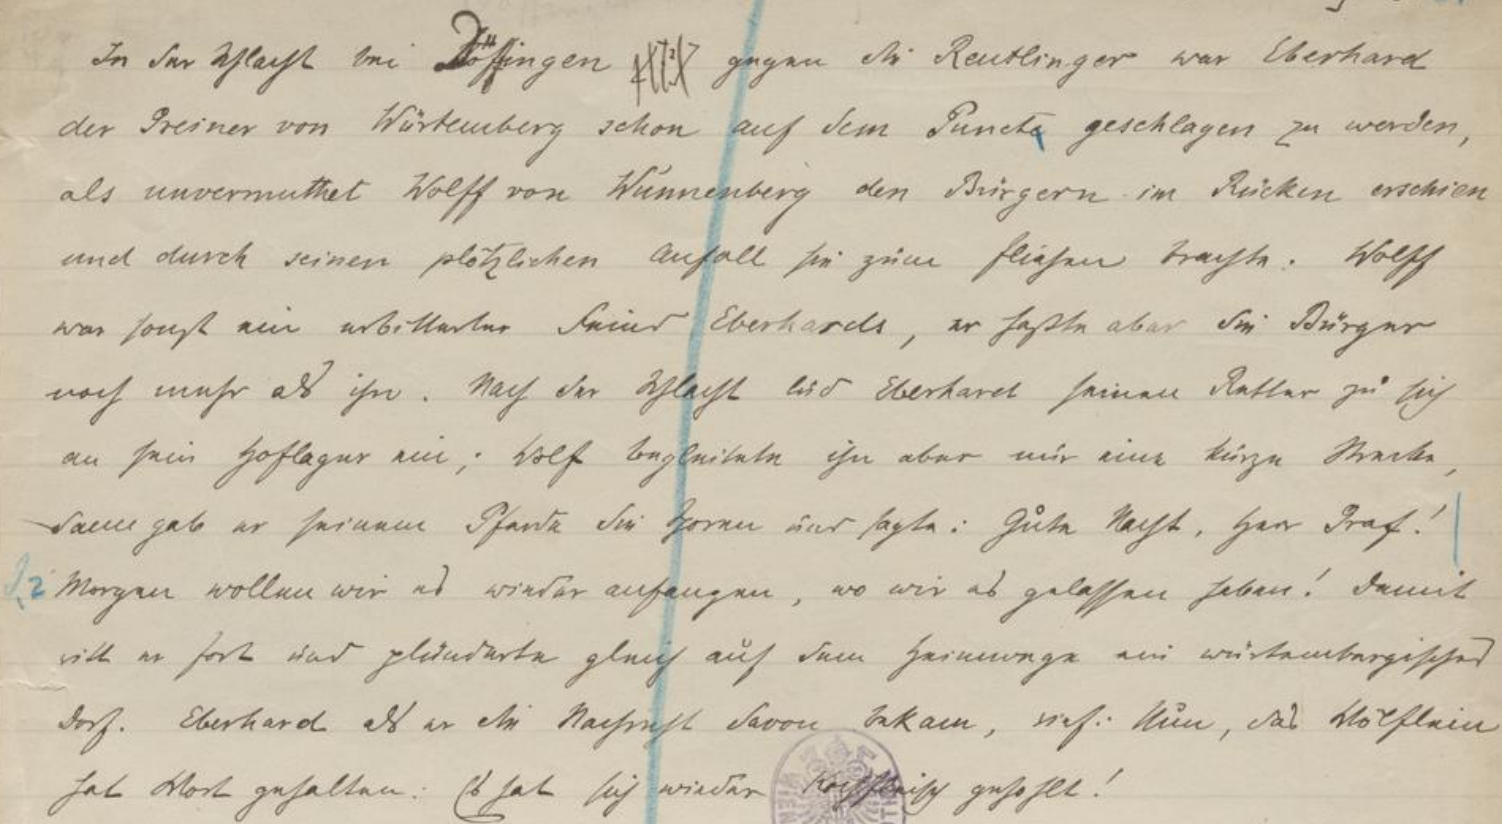 In der Schlacht bei Döffingen gegen die Reutlinger war Eberhard
der Greiner von Würtemberg schon auf dem Puncte geschlagen zu werden,
als unvermuthet Wolff von Wünnenberg den Bürgern im Rücken erschien
und durch seinen plötzlichen Anfall sie zum fliehen brachte. Wolff
war sonst ein erbitterter Feind Eberhards, er haßte aber die Bürger
noch mehr als ihn. Nach der Schlacht lud Eberhard seinen Retter zu sich
an sein Hoflager ein; Wolf begleitete ihn aber nur eine kurze Strecke,
dann gab er seinem Pferde die Sporen und sagte: Gute Nacht, Herr Graf!
Morgen wollen wir es wieder anfangen, wo wir es gelassen haben! Damit
ritt er fort und plünderte gleich auf dem Heimwege ein würtembergisches
Dorf. Eberhard als er die Nachricht davon bekam, rief: Nun, das Wölflein
hat Wort gehalten: Es hat sich wieder Kochfleisch geholt!